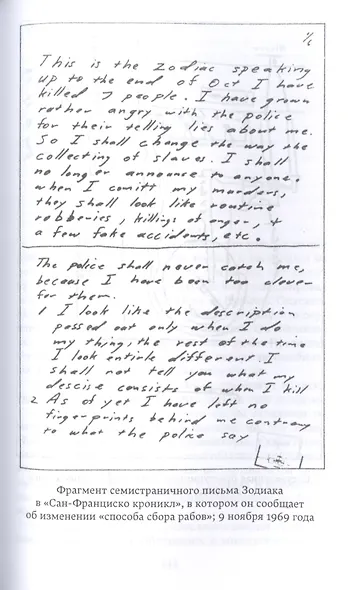 1/6
This is the Zodiac speaking
up to the end of Oct I have
killed 7 people. I have grown
rather angry with the police
for their telling lies about me.
So I shall change the way the
collecting of slaves. I shall
no longer announce to anyone.
when I comitt my murders,
they shall look like routine
robberies, killings of anger, +
a few fake accidents, etc.
The police shall never catch me,
because I have been too clever
for them.
1 I look like the description
passed out only when I do
my thing, the rest of the time
I look entirle different. I
shall not tell you what my
descise consists of when I kill
2 As of yet I have left no
fingerprints behind me contrary
to what the police say
Фрагмент семистраничного письма Зодиака
в «Сан-Франциско кроникл», в котором он сообщает
об изменении «способа сбора рабов»; 9 ноября 1969 года